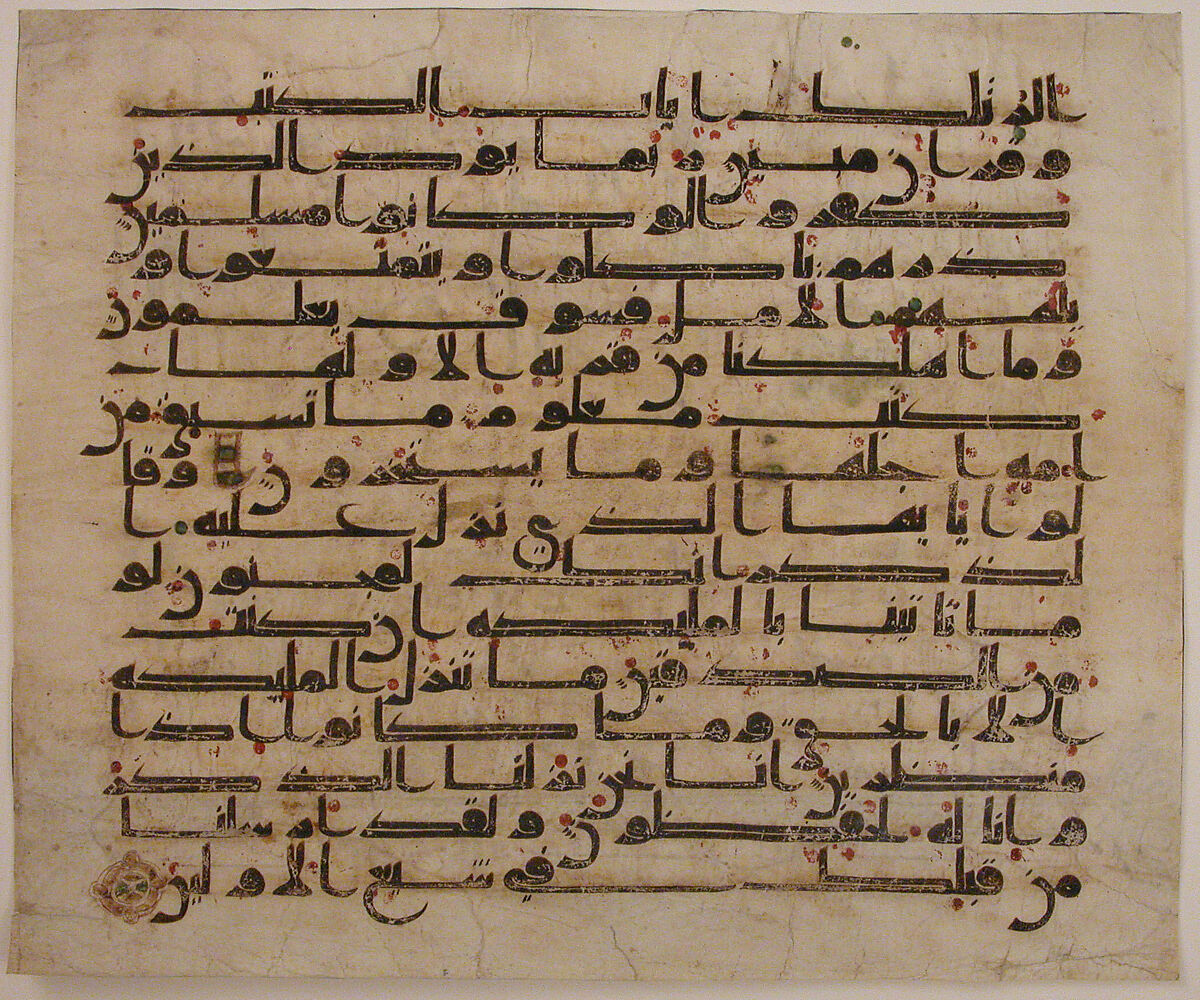 الر تلك ايت الكتب
وقران مبين ربما يود الذين
كفروا لو كانوا مسلمين
ذرهم ياكلوا ويتمتعوا و
يلههم الامل فسوف يعلمون
وما اهلكنا من قرية الا ولها
كتب معلوم ما تسبق من
امة اجلها وما يستخرون وقا
لوا يايها الذي نزل عليه ا
لذكر انك لمجنون لو
ما تاتينا بالمليكة ان كنت
من الصدقين ما تنزل المليكة
الا بالحق وما كانوا اذا
منظرين انا نحن نزلنا الذكر
وانا له لحفظون ولقد ارسلنا
من قبلك في شيع الاولين